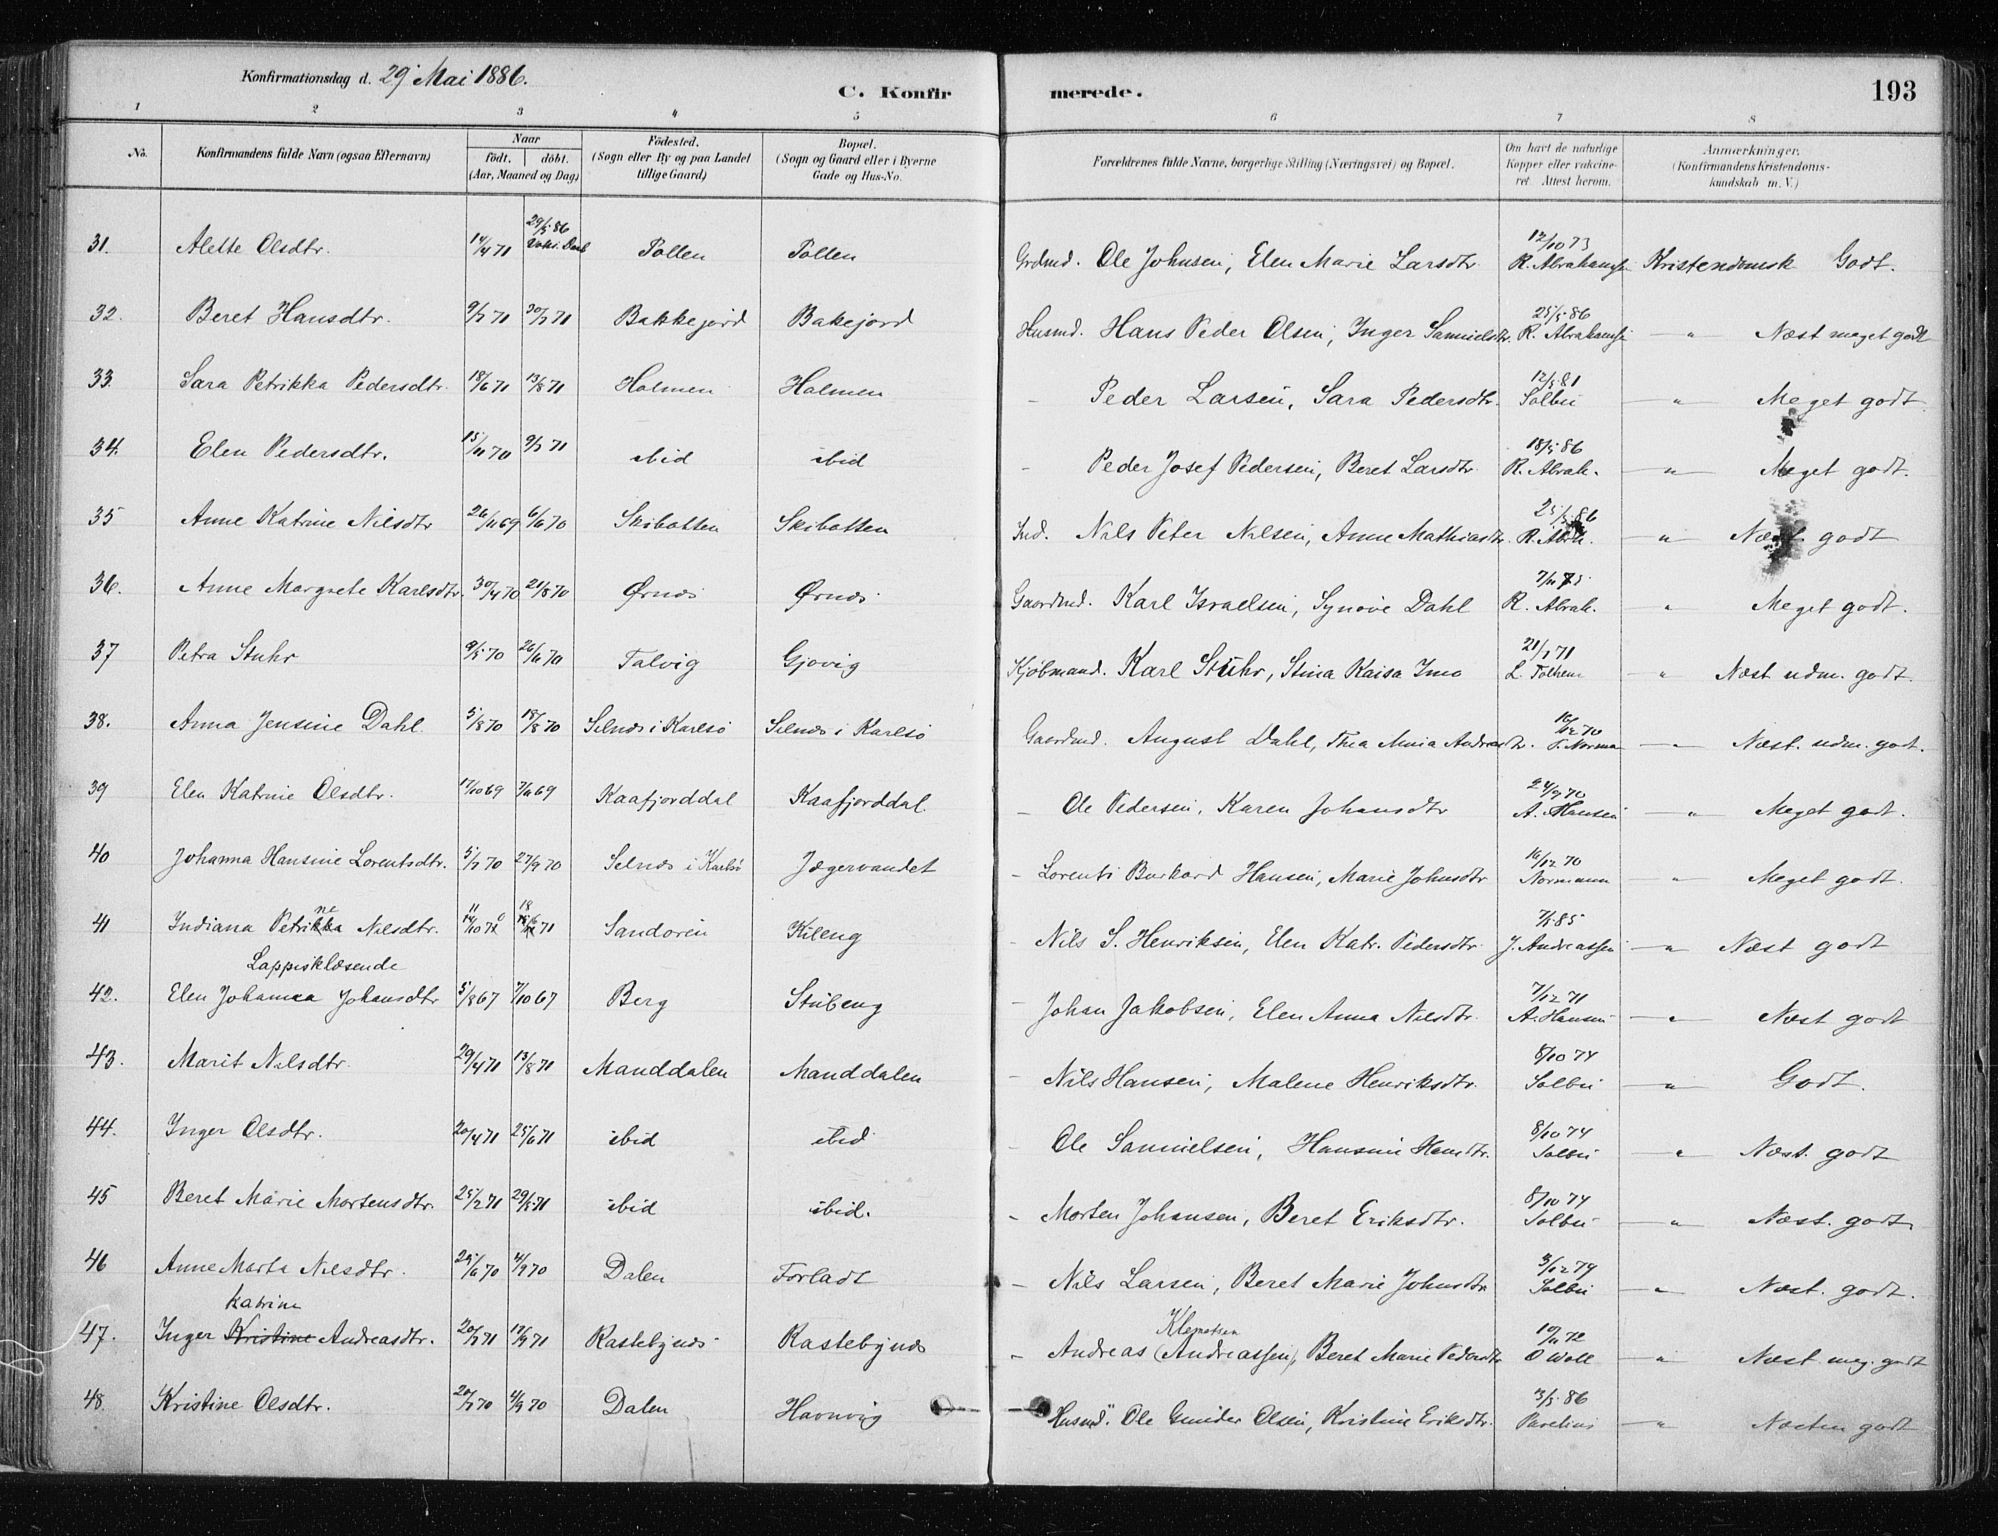 Konfirmationsdag d. 29 Mai 1886.
C. Konfirmerede.
193
1 2 3 4 5 6 7 8
No. Konfirmandens fulde Navn (ogsaa Efternavn) Naar födt. döbt. (Aar, Maaned og Dag) Födested. (Sogn eller By og paa Landet tillige Gaard) Bopæl. (Sogn og Gaard eller i Byerne Gade og Hus-No. Forældrenes fulde Navne, borgerlige Stilling (Næringsvei) og Bopæl. Om havt de naturlige Kopper eller vakcineret. Attest herom. Anmærkninger. (Konfirmandens Kristendomskundskab m. V.)
31. Alette Olsdtr. 14/4 71 29/5 86 Pollen Pollen Grdmd. Ole Johnsen, Elen Marie Larsdtr. 12/10 73 R. Abrahamsen Kristendomsk Godt.
32. Beret Hansdtr. 9/7 71 30/7 71 Bakkejord Bakejord Husmd. Hans Peder Olsen, Inger Samuelsdtr. 25/5 86 R. Abrahamsen — " Næst meget godt
33. Sara Petrikka Pedersdtr. 18/6 71 13/8 71 Holmen Holmen - Peder Larsen, Sara Pedersdtr. 12/5 81 Solbu — " Meget godt
34. Elen Pedersdtr. 15/11 70 9/7 71 ibid ibid - Peder Josef Pedersen, Beret Larsdtr. 18/5 86 R. Abrah. — " Meget godt.
35 Anne Katrine Nilsdtr 26/11 69 6/6 70 Skibotten Skibotten Ind. Nils Peter Nilsen, Anne Mathiasdtr. 25/5 86 R. Abrh. — " Næst godt
36. Anne Margrete Karlsdtr. 30/4 70 21/8 70 Ørnæs Ørnæs Gaardmd. Karl Israelsen, Synöve Dahl 7/11 75 R. Abrah. " Meget godt.
37 Petra Stuhr 9/5 70 26/6 70 Talvig Gjøvig Kjöbmand. Karl Stuhr, Stina Kaisa Imo 21/7 71 L. — " Næst udm. godt.
38. Anna Jensine Dahl. 5/8 70 18/8 70 Selnæs i Karlsö Selnæs i Karlsö Gaardmd. August Dahl, Thea Maria Andreasdtr. 16/12 70 — " Næst. udm. godt.
39 Elen Katrine Olsdtr. Kaafjorddal Kaafjorddal. - Ole Pedersen, Karen Johansdtr 24/9 70 A. Hansen — " Meget godt.
40 Johanna Hansine Lorentsdtr. 5/7 70 27/9 70 Selnæs i Karlsö Jægervandet - Lorents Burkard Hansen, Marie Johnsdtr 16/12 70 Normann — " Meget godt.
41 Indiana Petrikka ne Nilsdtr. Sandøren Kileng - Nils S. Henriksen, Elen Katr. Pedersdtr. 7/5 85 J. Andreassen — " Næst godt
Lappisklæsende
42. Elen Johanna Johansdtr 5/8 67 7/10 67 Berg Stubeng - Johan Jakobsen, Elen Anna Nilsdtr. 7/12 71 A. Hansen — " Næst godt
43. Marit Nilsdtr. 29/4 71 13/8 71 Manddalen Manddalen - Nils Hansen, Malene Henriksdtr. 8/10 74 Solbu — " Godt.
44. Inger Olsdtr. 20/4 71 25/6 71 ibid ibid - Ole Samuelsen, Hansine Hansdtr. 8/10 74 Solbu — " Næst. godt
45 Beret Marie Mortensdtr. 25/2 71 29/5 71 ibid ibid. - Morten Johansen, Beret Eriksdtr. 8/10 74 Solbu — " Næst. godt
46 Anne Marta Nilsdtr. 25/6 70 4/9 70 Dalen Forladt - Nils Larsen, Beret Marie Johnsdtr 3/12 79 Solbu — " Næst. godt.
47. Inger Kristine Katrine Andreasdtr. 20/7 71 17/9 71 Rastebynæs Rastebynæs - Andreas (Andreassen) Klemetsen, Beret Marie Pedersdtr 10/11 72 O Woll — " Næst meg. godt
48. Kristine Olsdtr. 20/7 70 4/9 70 Dalen Havnvig Husmd. Ole Gunder Olsen, Kristine Eriksdtr. 3/5 86 — " Næsten godt